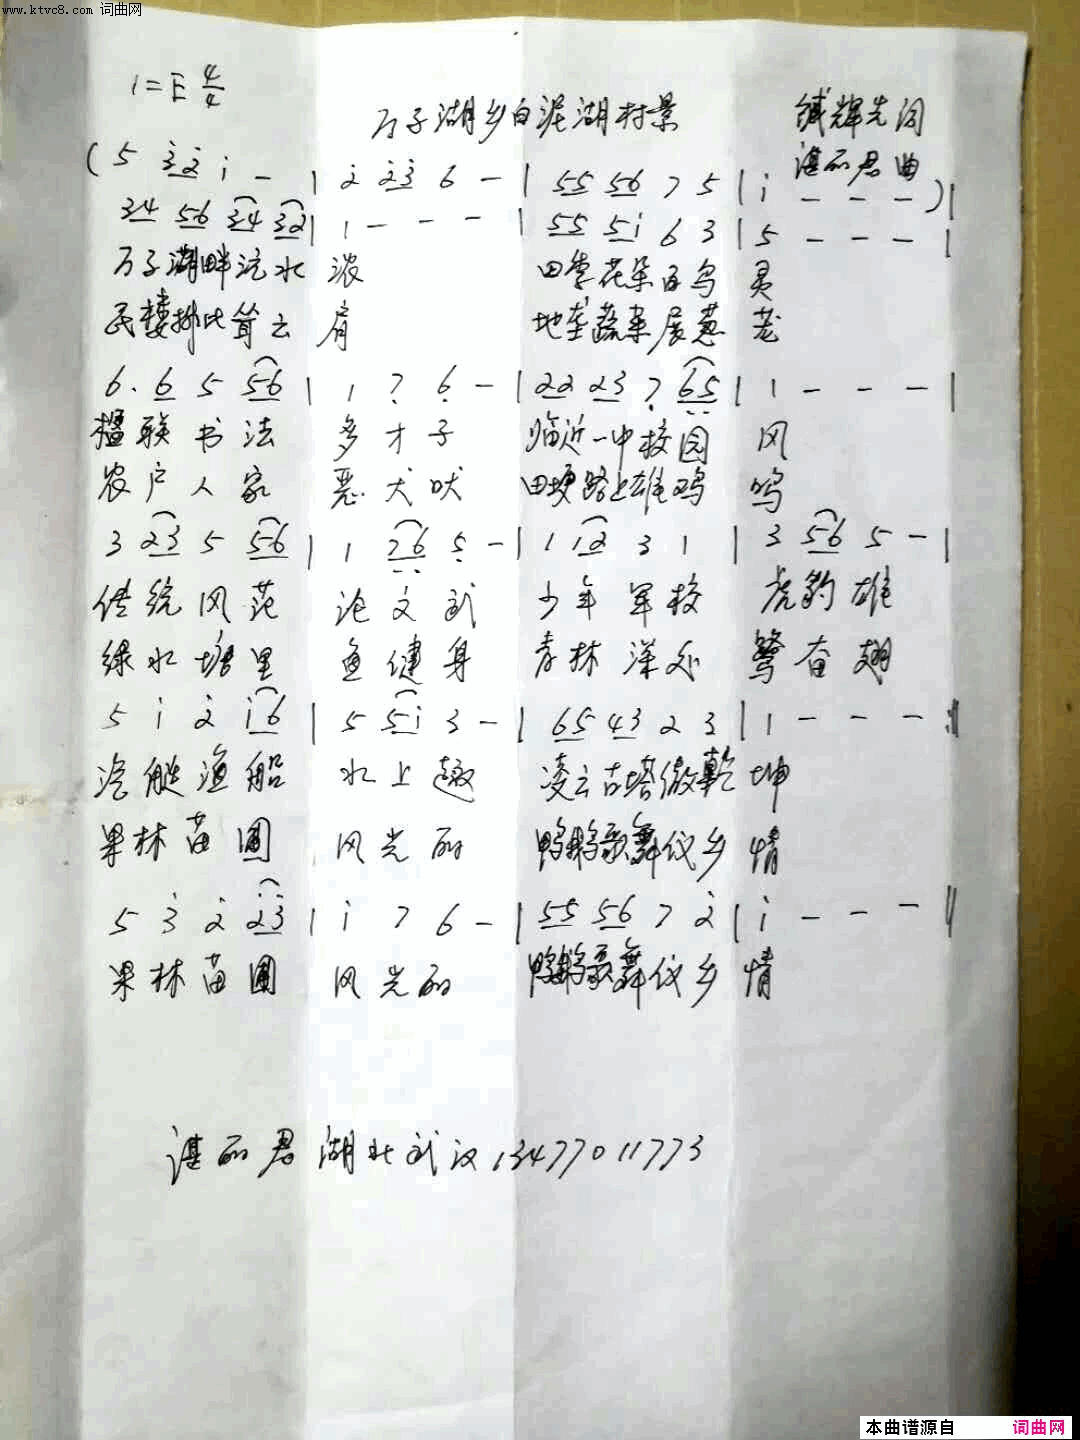 www.ktvc8.com 词曲网
1=E 4/4
万子湖乡白泥湖村景
缄辉先词
湛丽君曲
( 5 3̲̇2̲̇ i - | 2̇ 2̲̇3̲̇ 6 - | 5̲5̲ 5̲6̲ 7 5 | i - - - ) |
3̲4̲ 5̲6̲ 3̲4̲ 3̲2̲ | 1 - - - | 5̲5̲ 5̲i̲ 6 3 | 5 - - - |
万子湖畔沅水 浓 田季花朵百鸟 灵
民楼排比耸云 肩 地垄蔬菜展葱 茏
6. 6̲ 5 5̲6̲ | 1 7̣ 6̣ - | 2̲2̲ 2̲3̲ 7̣ 6̲̣5̲̣ | 1 - - - |
楹联书法 多才子 临近一中校园 风
农户人家 恶犬吠 田埂路上雄鸡 鸣
3 2̲3̲ 5 5̲6̲ | 1 7̲̣6̲̣ 5̣ - | 1 1̲2̲ 3 1 | 3 5̲6̲ 5 - |
传统风范 论文武 少年军校 虎豹雄
绿水塘里 鱼健身 青林深处 鹭奋翅
5 i 2̇ i̲6̲ | 5 5̲i̲ 3 - | 6̲5̲ 4̲3̲ 2 3 | 1 - - - :||
汽艇渔船 水上趣 凌云古塔傲乾 坤
果林苗圃 风光丽 鸭鹅歌舞仪乡 情
5 3̇ 2̇ 2̲̇3̲̇ | i 7 6 - | 5̲5̲ 5̲6̲ 7 2̇ | i - - - ||
果林苗圃 风光丽 鸭鹅歌舞仪乡 情
湛丽君 湖北武汉 13477011773
本曲谱源自 词曲网